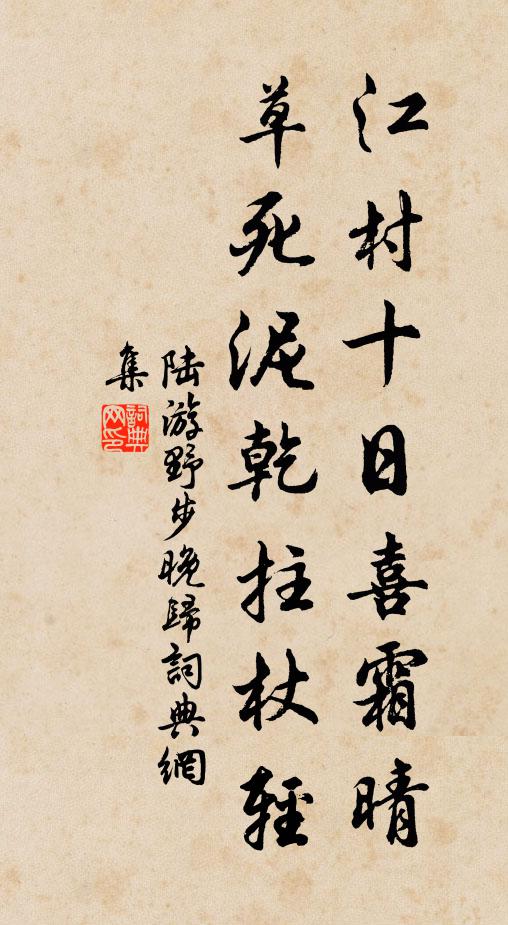 江村十日喜霜晴
草死泥乾拄杖輕
陆游野步晚歸詞典網
集
詞典网印